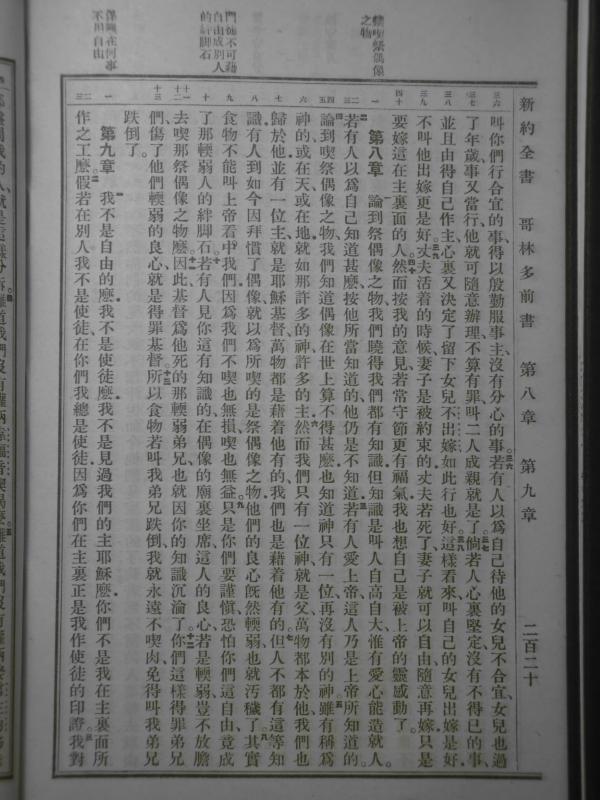 新約全書　哥林多前書　第八章　第九章　二百二十
叫你們行合宜的事、得以殷勤服事主、沒有分心的事、若有人以爲自己待他的女兒不合宜、女兒也過
了年歲、事又當行、他就可隨意辦理、不算有罪、叫二人成親就是了、倘若人心裏堅定、沒有不得已的事、
並且由得自己作主、心裏又決定了留下女兒不出嫁、如此行也好、這樣看來、叫自己的女兒出嫁是好、
不叫他出嫁更是好。丈夫活着的時候、妻子是被約束的、丈夫若死了、妻子就可以自由、隨意再嫁、只是
要嫁這在主裏面的人、然而按我的意見、若常守節更有福氣、我也想自己是被上帝的靈感動了。
第八章　論到祭偶像之物、我們曉得我們都有知識、但知識是叫人自高自大、惟有愛心能造就人。
若有人以爲自己知道甚麼、按他所當知道的、他仍是不知道、若有人愛上帝、這人乃是上帝所知道的。
論到喫祭偶像之物、我們知道偶像在世上算不得甚麼、也知道神只有一位、再沒有別的神、雖有稱爲
神的、或在天、或在地、就如那許多的神、許多的主、然而我們只有一位神、就是父、萬物都本於他、我們也
歸於他、並有一位主、就是耶穌基督、萬物都是藉着他有的、我們也是藉着他有的、但人不都有這等知
識、有人到如今因拜慣了偶像、就以爲所喫的是祭偶像之物、他們的良心旣然輭弱、也就汚穢了、其實
食物不能叫上帝看中我們、因爲我們不喫也無損、喫也無益、只是你們要謹愼、恐怕你們這自由、竟成
了那輭弱人的絆脚石、若有人見你這有知識的、在偶像的廟裏坐席、這人的良心、若是輭弱、豈不放膽
去喫那祭偶像之物麼、因此基督爲他死的那輭弱弟兄、也就因你的知識沉淪了、你們這樣得罪弟兄
們、傷了他們輭弱的良心、就是得罪基督、所以食物若叫我弟兄跌倒、我就永遠不喫肉、免得叫我弟兄
跌倒了。
第九章　我不是自由的麼、我不是使徒麼、我不是見過我們的主耶穌麼、你們不是我在主裏面所
作之工麼、假若在別人、我不是使徒、在你們我總是使徒、因爲你們在主裏正是我作使徒的印證、我對